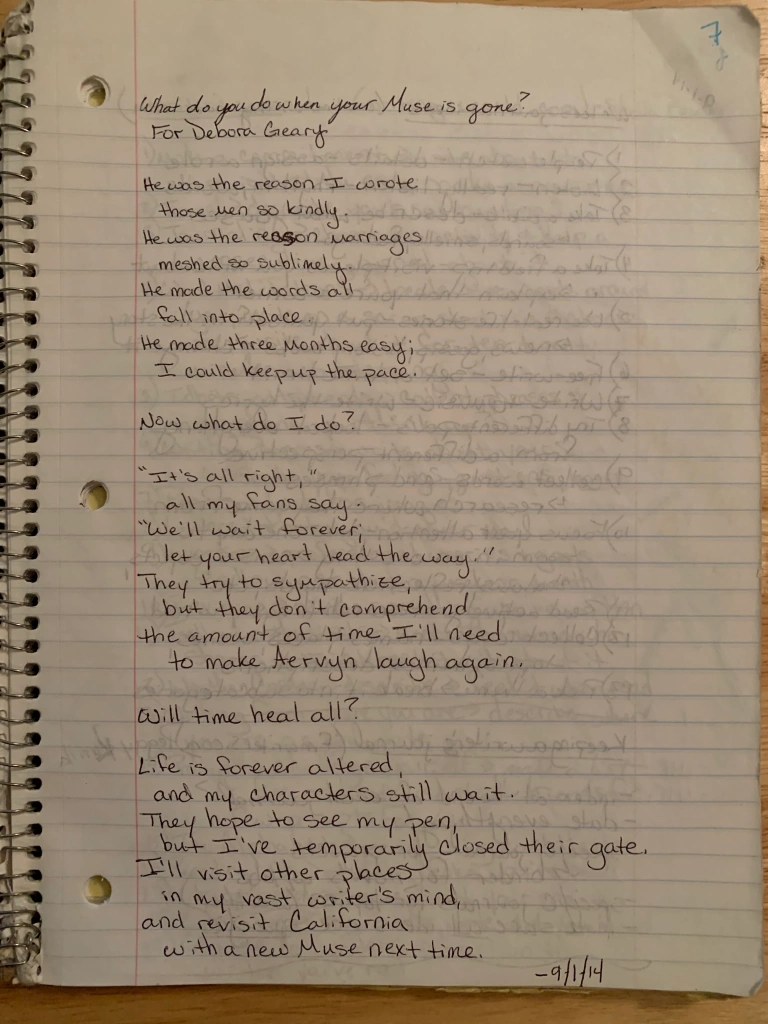 What do you do when your Muse is gone?
For Debora Geary
He was the reason I wrote
those men so kindly.
He was the reason marriages
meshed so sublimely.
He made the words all
fall into place.
He made three months easy;
I could keep up the pace.
Now what do I do?
"It's all right,"
all my fans say.
"We'll wait forever;
let your heart lead the way."
They try to sympathize,
but they don't comprehend
the amount of time I'll need
to make Aervyn laugh again.
Will time heal all?
Life is forever altered,
and my characters still wait.
They hope to see my pen,
but I've temporarily closed their gate.
I'll visit other places
in my vast writer's mind,
and revisit California
with a new Muse next time.
-9/1/14